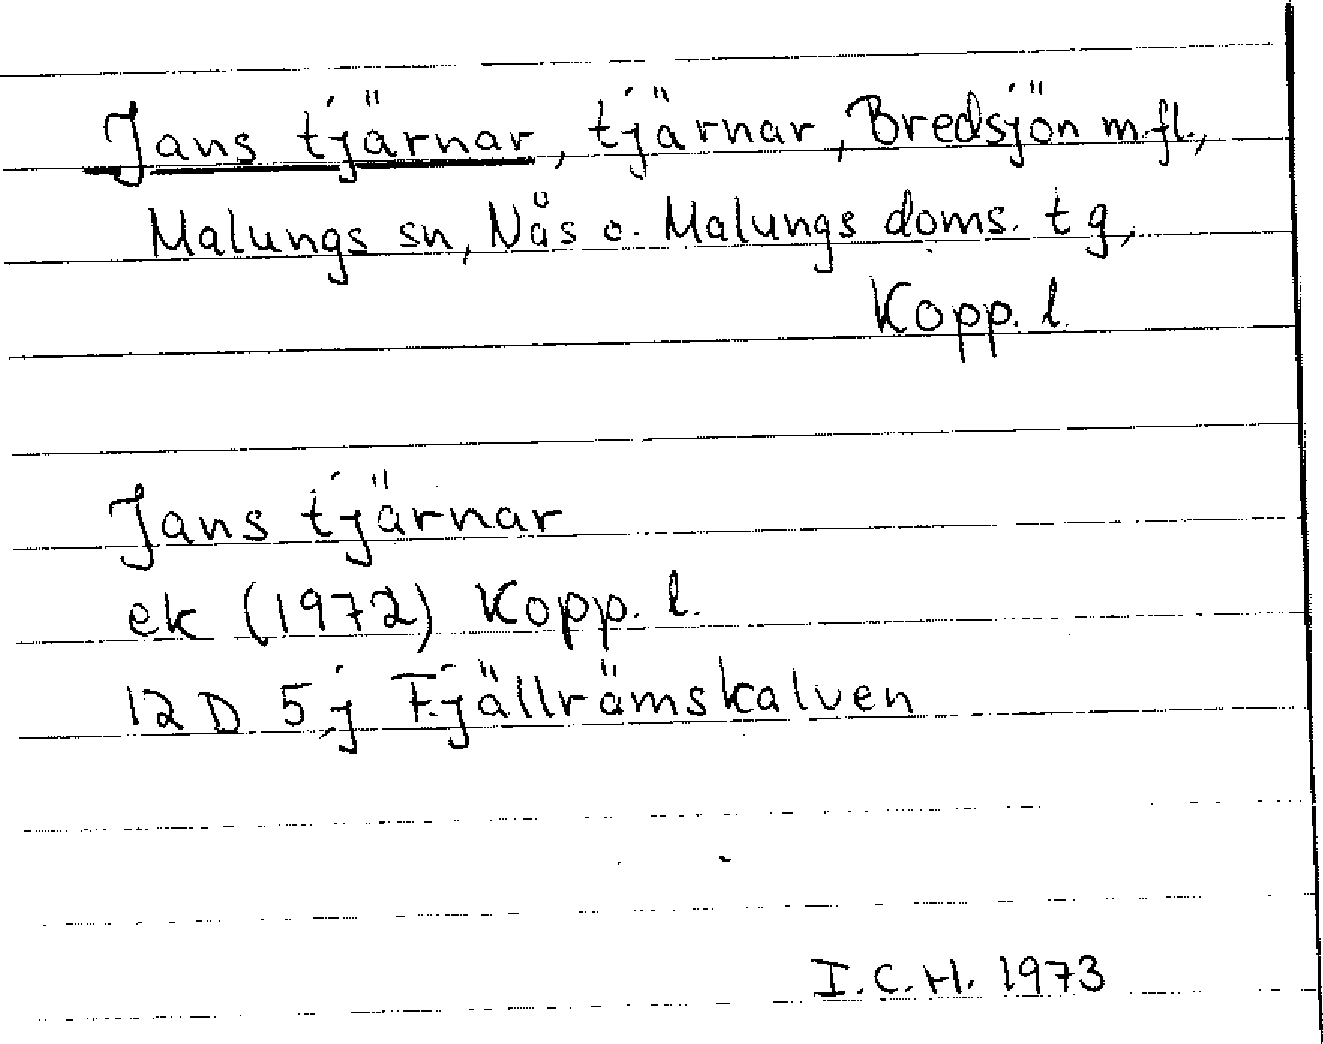 Jans tjärnar, tjärnar, Bredsjön m.fl.,
Malungs sn, Nås o. Malungs doms. tg,
Kopp. l.
Jans tjärnar
ek (1972) Kopp. l.
12 D 5 j Fjällrämskalven
I.C.H. 1973